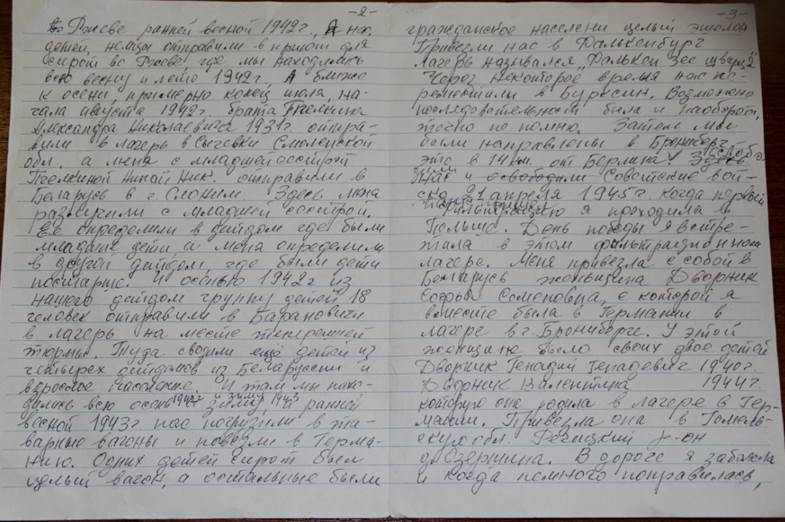 -2-
В. Ржеве ранней весной 1942г., нас,
детей, немцы отправили в приют для
сирот во Ржеве где мы находились
всю весну и лето 1942г., А ближе
к осени, примерно конец июля, на-
чала августа 1942г. брата Пчелкина
Александра Николаевича 1931г. отпра-
вили в лагерь в Сычевки Смоленской
обл. а меня с младшей сестрой
Пчелкиной Ник. отправили в
Беларусь в г. Слоним. Здесь меня
разлучили с младшей сестрой.
Её определили в дитдом где были
младшие дети а меня определили
в другой дитдом, где были дети
постарше. И осенью 1942г из
нашего дитдом группу детей 18
человек отправили в Барановичи
в лагерь на месте теперешней
тюрьмы. Туда свозили ещё детей из
четырех дитдомов из Беларуссии и
взрослое население. И там мы нахо-
дились всю осень 1942г и зиму, 1943 и ранней
весной 1943г нас погрузили в та-
варные вагоны и повезли в Герма-
нию. Одних детей сирот был
целый вагон, а остальные были
-3-
гражданское населени целый эшолон
Привезли нас в Фалькенбург
Лагерь назывался „Фалькен зее
Через некоторое время нас пе-
реместили в Возможно
последовательность была и наоборот,
точно не помню. Затем мы
были направлены в
это в 14 км. от Берлина.
нас и освободили Советские вой-
ска 21 апреля 1945г. Когда первый
Фильтрацию я проходила в
Польше. День победы я встре-
тила в этом фильтрационном
лагере. Меня привезла с собой в
Беларусь женьщина Дворник
Софья Семеновна, с которой я
вместе была в Германии в
лагере в г. У этой
женщины было своих двое детей
Дворник Генадий Генадевич 1940г.
Дворник Валентина 1944г.
которую она родила в лагере в Гер-
мании. Привезла она в Гомель-
скую обл. Речицкий р-он
д. Озерщина. В дороге я заболела
и когда немного поправилась,